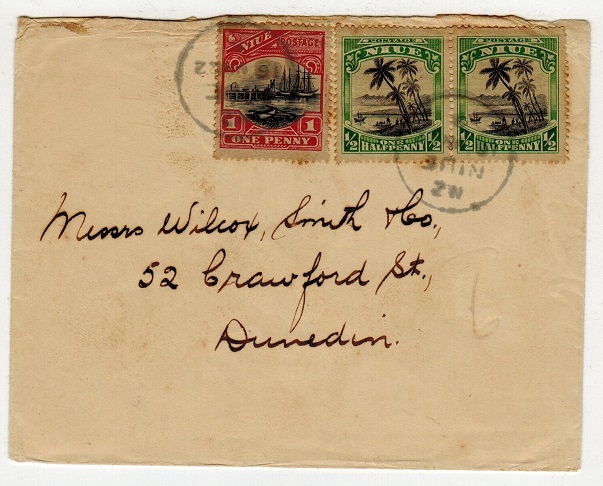 NIUE POSTAGE
1 1
ONE PENNY
POSTAGE
NIUE
½ ONE HALFPENNY ½
POSTAGE
NIUE
½ ONE HALFPENNY ½
NIUE
NZ
Messrs Wilcox, Smith & Co.,
52 Crawford St.,
Dunedin.